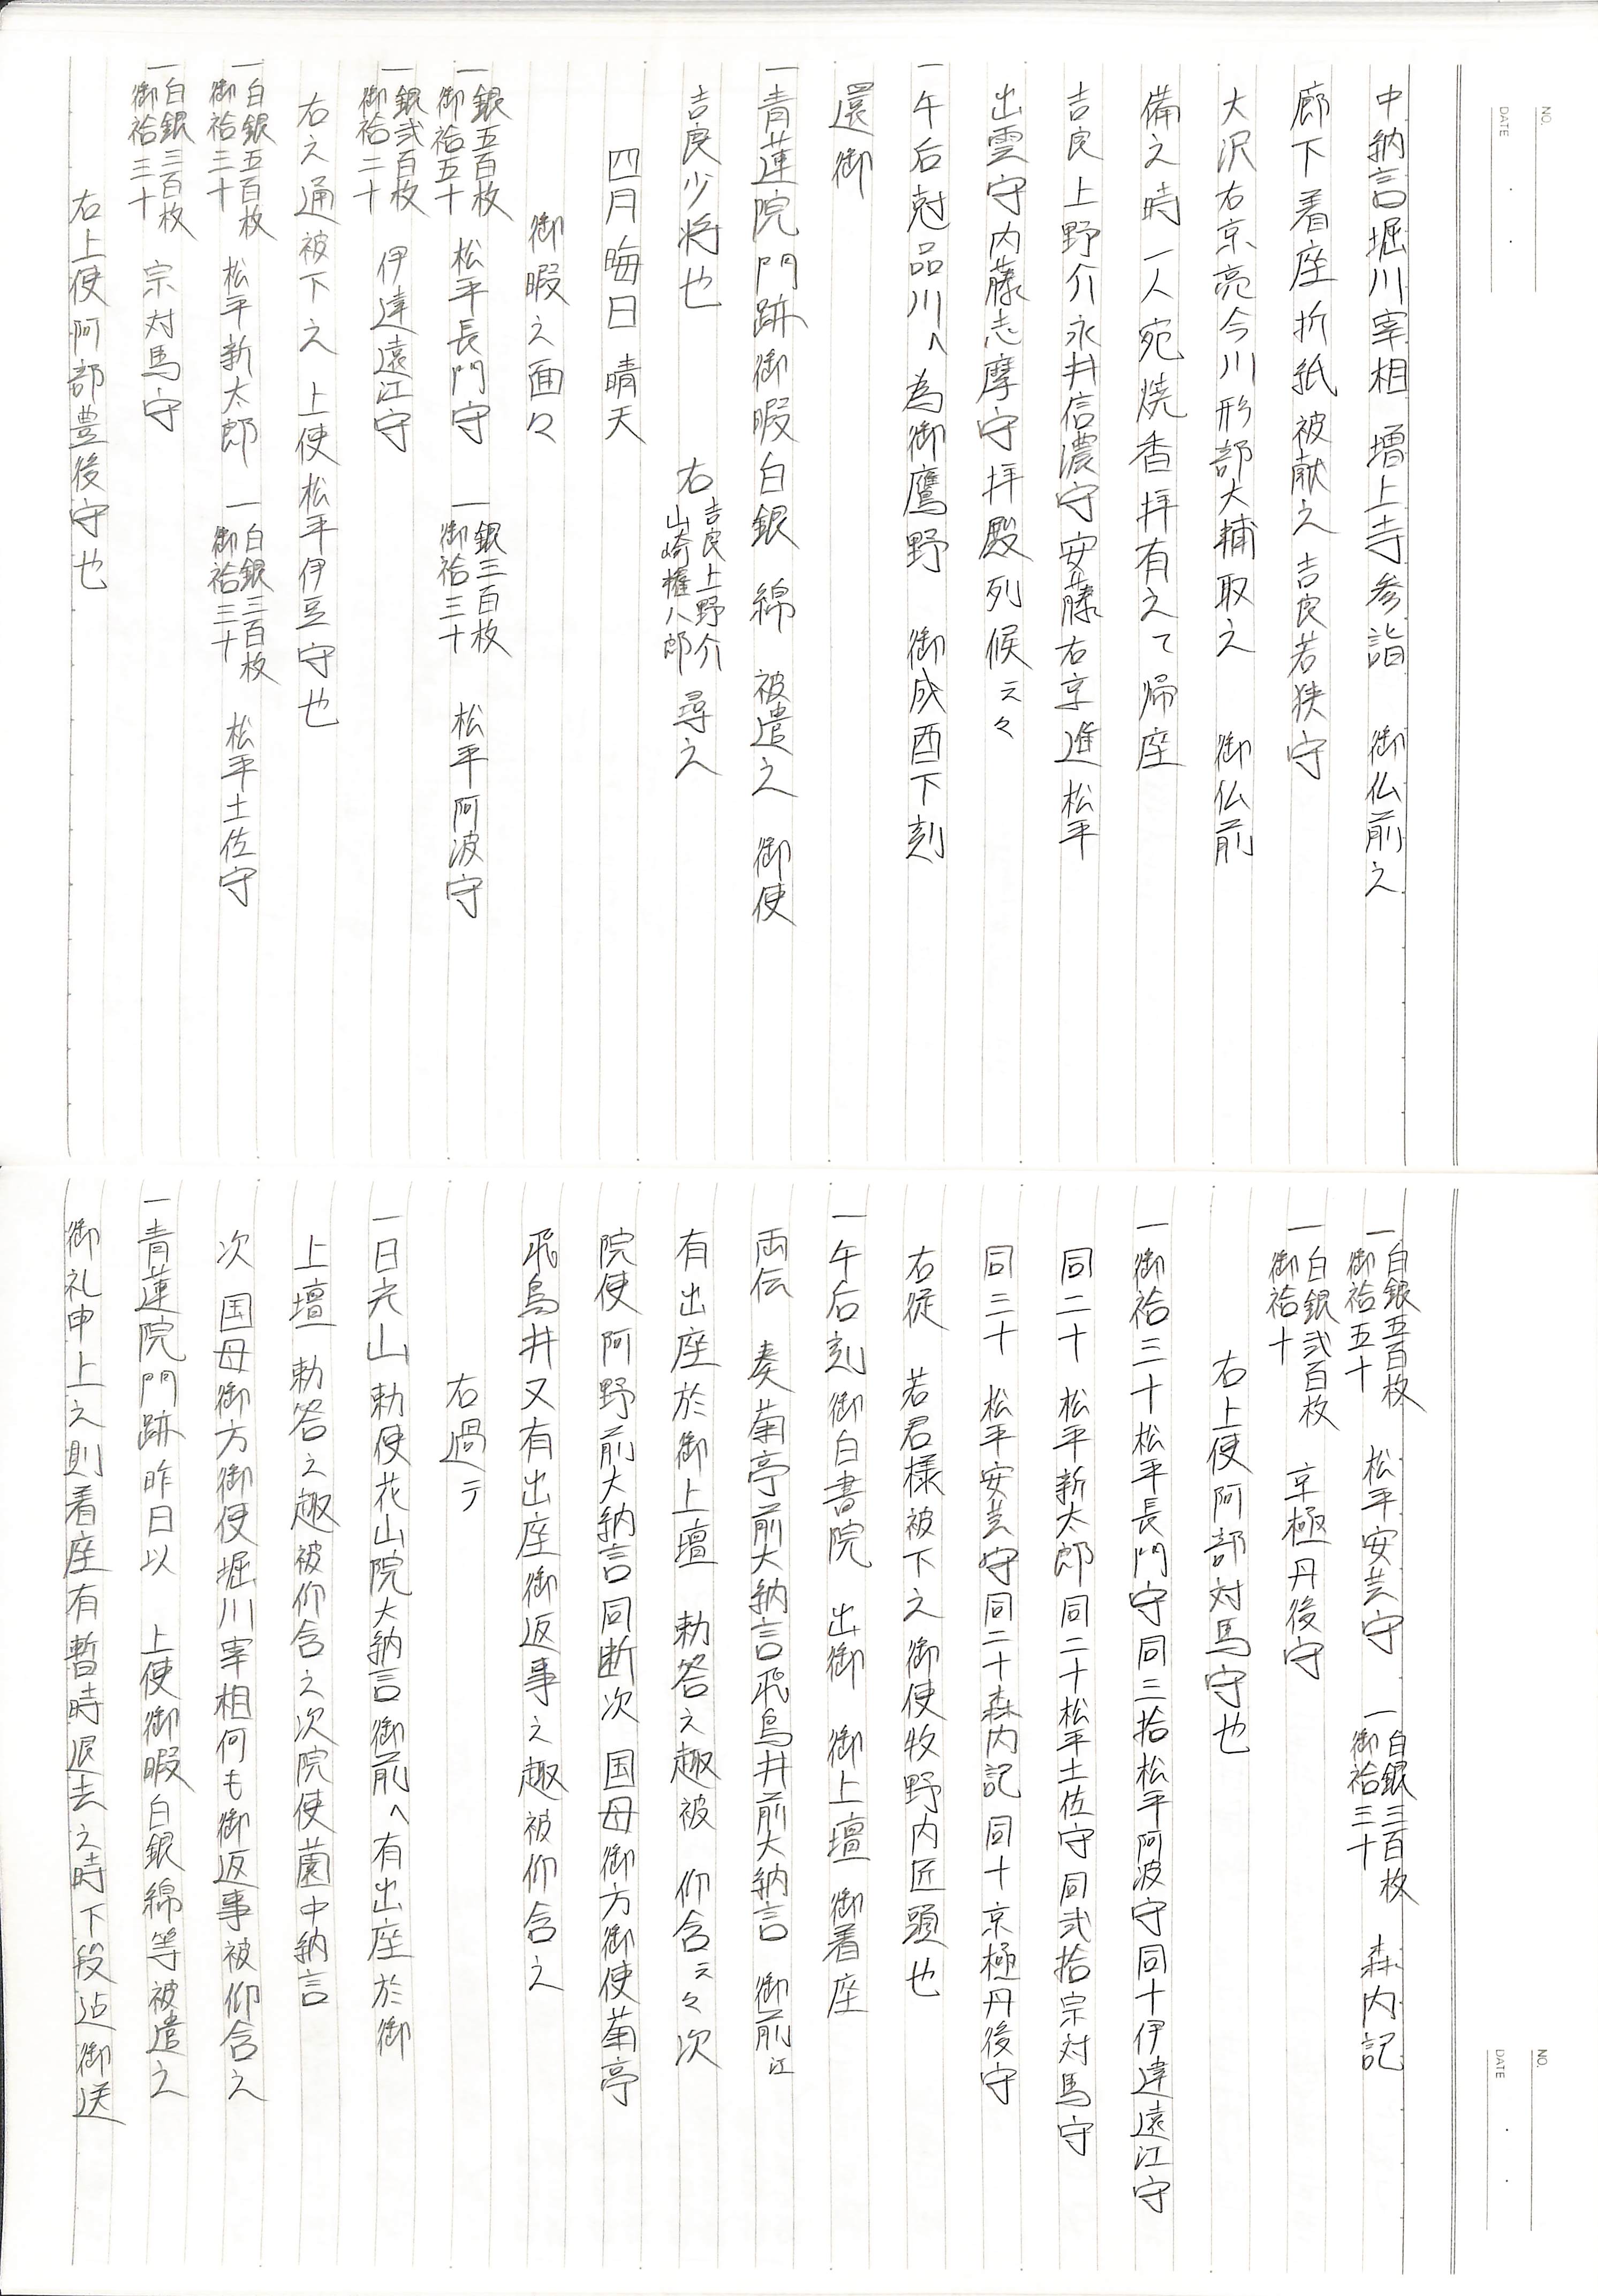 NO.
DATE
中納言堀川宰相 増上寺参詣 御仏前之
廊下着座折紙被献之吉良若狭守
大沢右京亮今川形部大輔取之 御仏前
備之時一人宛焼香拝有之て帰座
吉良上野介永井信濃守安藤右京進松平
出雲守内藤志摩守拝殿列候云々
一午后尅品川へ為御鷹野 御成酉下刻
還御
一青蓮院門跡御暇白銀 綿 被遣之 御使
吉良少将也 右 吉良上野介 山崎権八郎 尋之
四月晦日 晴天
御暇之面々
一銀五百枚 御袷五十 松平長門守 一銀三百枚 御袷三十 松平阿波守
一銀弐百枚 御袷二十 伊達遠江守
右之通被下之 上使松平伊豆守也
一白銀五百枚 御袷三十 松平新太郎 一白銀三百枚 御袷三十 松平土佐守
一白銀三百枚 御袷三十 宗対馬守
右上使阿部豊後守也
NO.
DATE
一白銀五百枚 御袷五十 松平安芸守 一白銀三百枚 御袷三十 森内記
一白銀弐百枚 御袷十 京極丹後守
右上使阿部対馬守也
一御袷三十松平長門守同三拾松平阿波守同十伊達遠江守
同二十 松平新太郎同二十松平土佐守同弐拾宗対馬守
同三十 松平安芸守同二十森内記同十京極丹後守
右従 若君様被下之御使牧野内匠頭也
一午后刻御白書院 出御 御上壇 御着座
両伝 奏菊亭前大納言飛鳥井前大納言 御前江
有出座於御上壇 勅答之趣被 仰含云々次
院使阿野前大納言同断次 国母御方御使菊亭
飛鳥井又有出座御返事之趣被仰含之
右過テ
一日光山 勅使花山院大納言御前へ有出座於御
上壇 勅答之趣被仰含之次院使薗中納言
次 国母御方御使堀川宰相何も御返事被仰含之
一青蓮院門跡昨日以 上使御暇白銀綿等被遣之
御礼申上之則着座有暫時退去之時下段迠御送